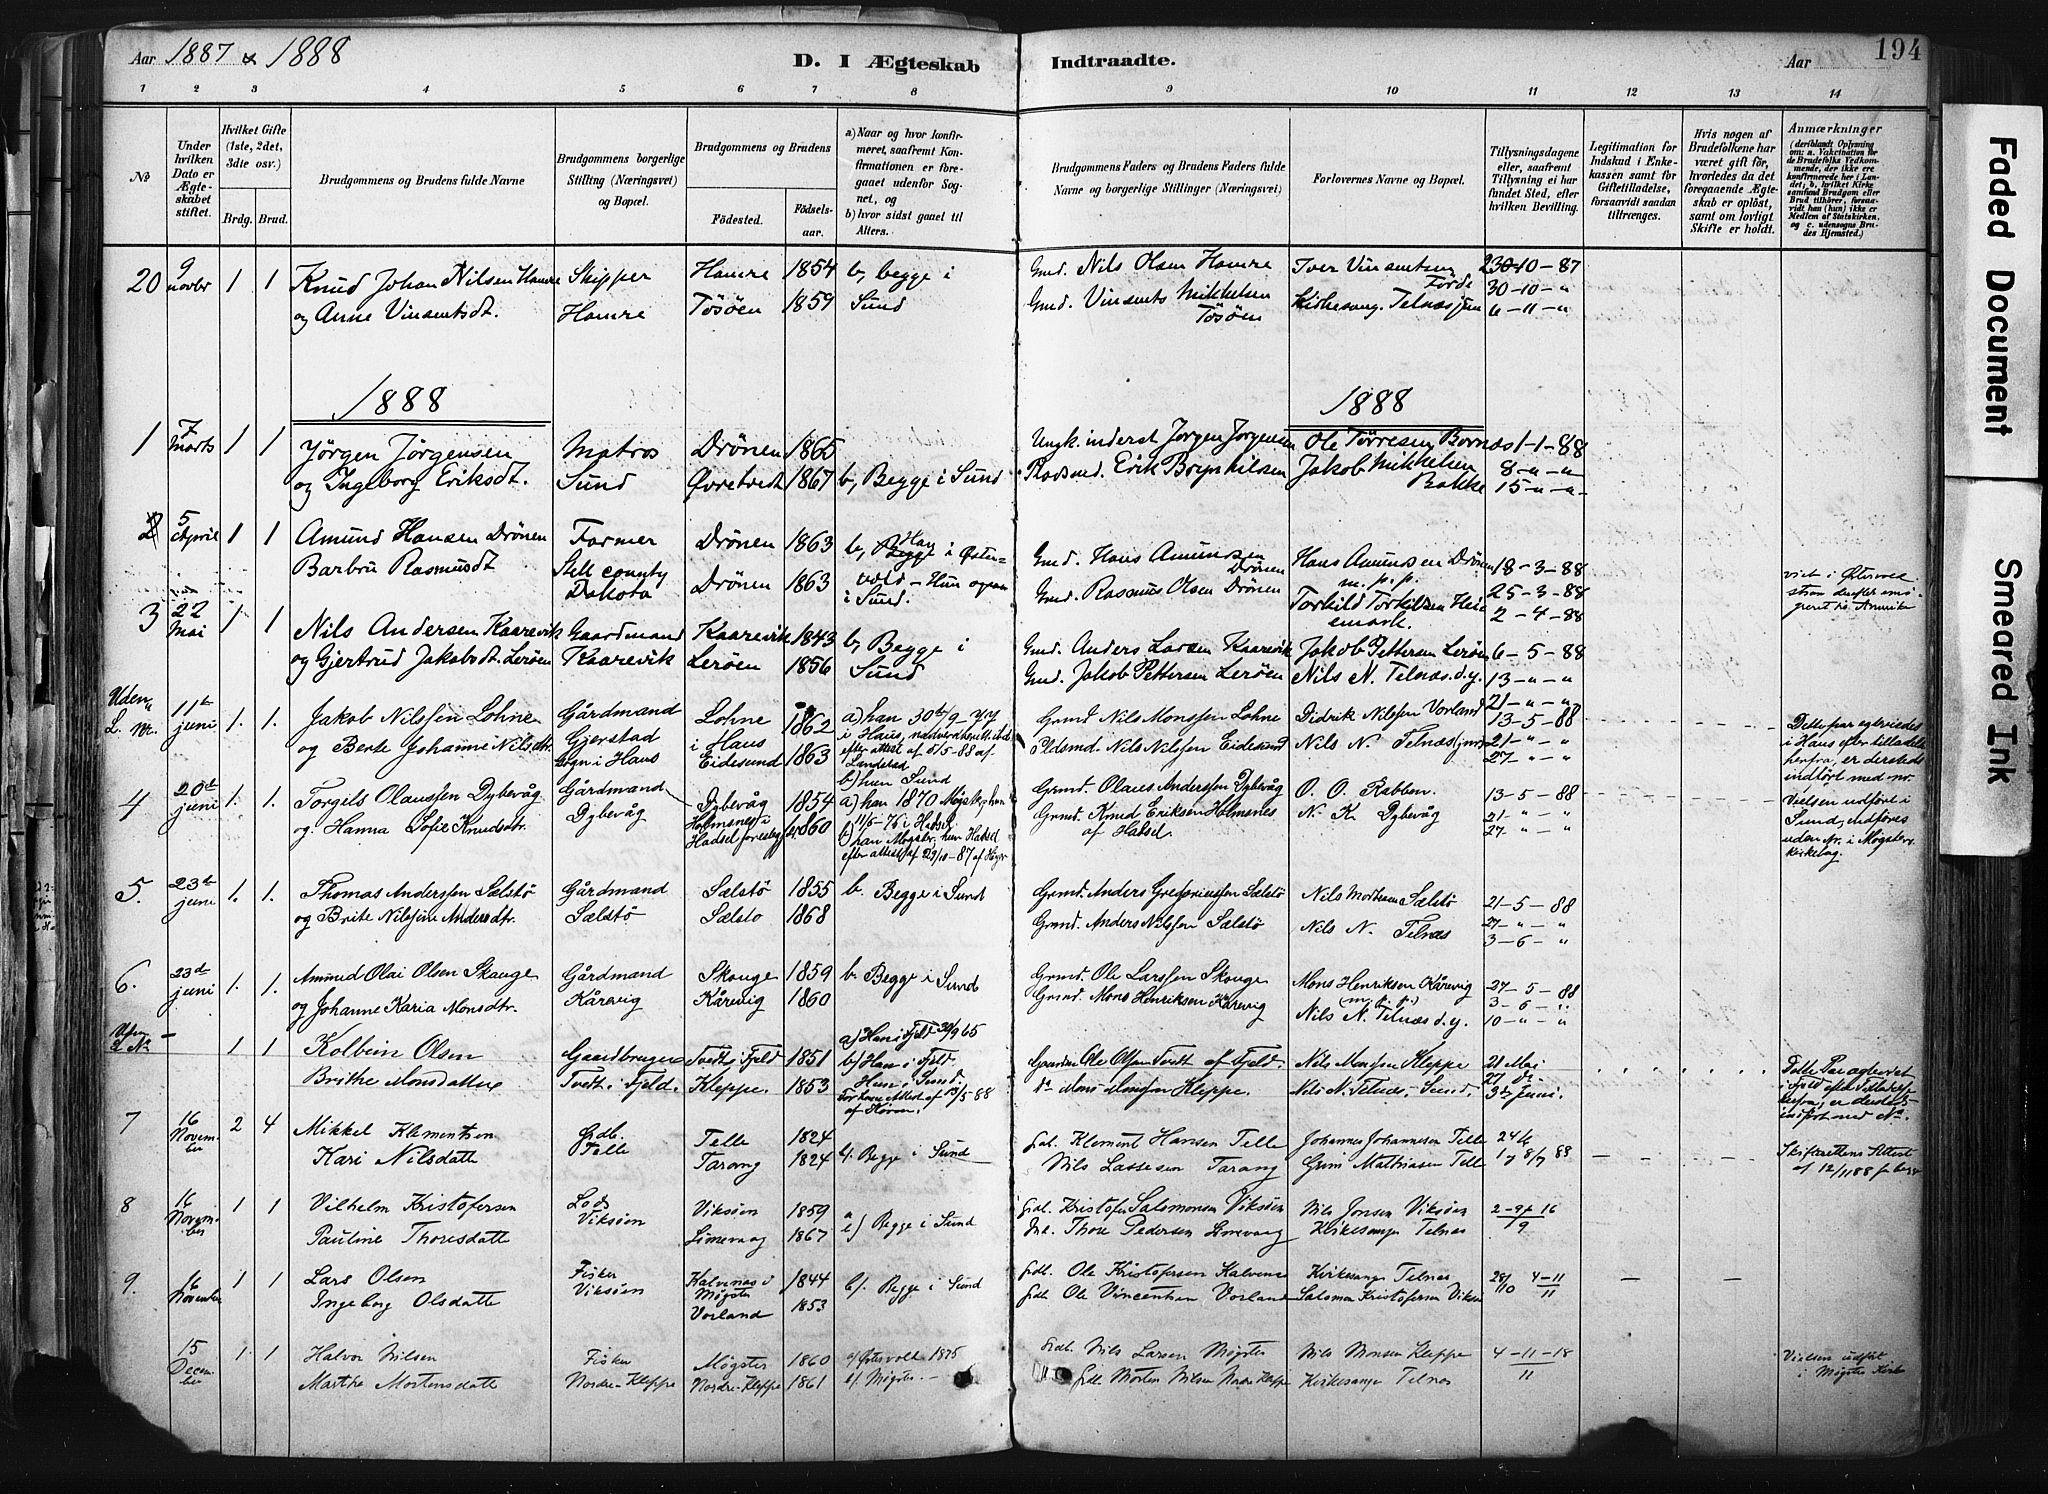 Aar 1887 & 1888
D. I Ægteskab
Indtraadte.
Aar
194
1 2 3 4 5 6 7 8 9 10 11 12 13 14
No
Under hvilken Dato er Ægteskabet stiftet.
Hvilket Gifte (1ste, 2det, 3die osv.)
Brdg. Brud.
Brudgommens og Brudens fulde Navne
Brudgommens borgerlige Stilling (Næringsvei) og Bopæl.
Brudgommens og Brudens
Fødested.
Fødselsaar.
a) Naar og hvor konfirmeret, saafremt Konfirmationen er foregaaet udenfor Sognet, og
b) hvor sidst gaaet til Alters.
Brudgommens Faders og Brudens Faders fulde Navne og borgerlige Stillinger (Næringsvei)
Forlovernes Navne og Bopæl.
Tillysningsdagene eller, saafremt Tillysning ei har fundet Sted, efter hvilken Bevilling.
Legitimation for Indskud i Enkekassen samt for Giftetilladelse, forsaavidt saadan tiltrænges.
Hvis nogen af Brudefolkene har været gift før, hvorledes da det foregaaende Ægteskab er opløst, samt om lovligt Skifte er holdt.
Anmærkninger
(deriblandt Oplysning om: a. Vaccination for de Brudefolks Vedkommende, der ikke ere konfirmerede her i Landet; b. hvilket Kirkesamfund Brudgom eller Brud tilhører, forsaavidt han (hun) ikke er Medlem af Statskirken, og c. udensogns Brudes Hjemsted.)
20 9 novbr 1 1 Knud Johan Nilsen Hamre Skipper Hamre 1854 b, begge i Gmd. Nils Olsen Hamre Iver Vinsentsen Förde 23-10-87
og Anne Vinsentsdt. Hamre Tösöen 1859 Sund Gmd. Vinsents Mikkelsen Tösöen Kirkesang. Telnæs jun 30-10-"
6-11-"
1888 1888
1 7 Marts 1 1 Jörgen Jörgensen Matros Drönen 1865 Ungk. inderst Jörgen Jörgensen Ole Törresen Bornæs 1-1-88
og Ingeborg Eriksdt. Sund Øvretvedt 1867 b, Begge i Sund Pladsmd. Erik Brynhilsen Jakob Mikkelsen Bakke 8-"-"
15-"-"
2 5 April 1 1 Amund Hansen Drönen Farmer Drönen 1863 b, Han i Østervold – Hun ogsaa i Sund. Gmd. Hans Amundsen Drönen Hans Amundsen Drönen m.p.p. 18-3-88
Barbru Rasmusdt Stell county Dakota Drönen 1863 Gmd. Rasmus Olsen Drönen Torkild Torkilsen Heiemark. 25-3-88
2-4-88
viet i Østervold
3 22 Mai 1 1 Nils Andersen Kaarevik Gaardmand Kaarevik 1843 b, Begge i Gmd. Anders Larsen Kaarevik Jakob Pettersen Leröen 6-5-88
og Gjertrud Jakobsdt. Leröen Kaarevik Leröen 1856 Sund Gmd. Jakob Pettersen Leröen Nils N. Telnæs d.y. 13-"-"
21-"-"
Uden L. nr. 11te juni 1. 1. Jakob Nilssen Lohne Gårdmand Lohne 1862 a) han 30te/9-77 Grmd Nils Monssen Lohne Didrik Nilssen Vorland 13-5-88
og Berte Johanne Nilsdtr. Gjerstad Sogn i Haus i Haus Eidesund 1863 i Haus, efter attest af 5/5-88 af Landerad Pldsmd. Nils Nilssen Eidesund Nils N. Telnæs (jun) 21-"-"
b) hun Sund 27-"-"
Dette par egteviedes i Haus efter tilladelse herfra, er dersteds indført med nr.
4 20de juni 1. 1. Torgils Olaussen Dybevåg Gårdmand Dybevåg 1854 a) han 1870 Møgster, hun 11/6-76 i Hadsel Grmd. Olaus Anderssen Dybevåg O. O. Rabben. 13-5-88
og Hanna Sofie Knudsdtr. Dybevåg Holmsnes i Hadsel 1860 b) han Møgster, hun Hadsel efter attest af 29/10-87 Grmd. Knud Eriksen Holmsnes af Hadsel N. K. Dybevåg 21-"-"
27-"-"
Vielsen udført i Sund, indføres uden Nr. i Møgster kirkebog.
5. 23de juni 1. 1. Thomas Anderssen Sælstø Gårdmand Sælstö 1855 b. Begge i Sund Grmd. Anders Gregoriussen Sælstö Nils Mortensen Sælstö 21-5-88
og Brite Nilsine Andersdtr. Sælstö Sælstö 1868 Grmd. Anders Nilssen Sælstö Nils N. Telnæs 27-"-"
3-6-"
6. 23de juni 1. 1. Amund Olai Olsen Skauge Gårdmand Skauge 1859 b. Begge i Sund Grmd. Ole Larssen Skauge Mons Henriksen Kårevig (m.p.p.) 27-5-88
og Johanne Karia Monsdtr. Kårevig Kårevig 1860 Grmd. Mons Henriksen Kårevig Nils N. Telnæs d.y. 3-6-"
10-"-"
Uden No – 1 1 Kolbein Olsen Gaardbruger Tvedt i Fjeld 1851 a) Han i Fjeld 30/9 65 Gaardm Ole Olsen Tvedt af Fjeld. Nils Monsen Kleppe 21 Mai
Brithe Monsdatter Tvedt i Fjeld. Kleppe. 1853 b) Han i Fjeld. Hun i Sund. do Mons Monsen Kleppe. Nils N. Telnæs, Sund. 27 do
3de Juni.
Dette Par egteviet i Fjeld efter Tilladelse herfra, er dersteds indført med No.
7 16 November 2 4 Mikkel Klementsen Grdb. Telle 1824 b. Begge i Sund Gdb. Klement Hansen Telle Johannes Johannesen Telle 24/6
Kari Nilsdatter Telle Tarang 1824 Nils Lassesen Tarang Grim Mathiasen Telle 1/7 8/7 88
Skifterettens Attest af 12/11 88
8 16 November 1 1 Vilhelm Kristofersen Lods Viksöen 1859 b) Begge i Sund Gdb. Kristofer Salomonsen Viksöen Nils Jonsen Viksöen 2-9-16
Pauline Thoresdatter Viksöen Limevaag 1867 Thore Pedersen Limevaag Kirkesanger Telnæs 9
9. 16 November 1 1 Lars Olsen Fisker Kalvenæs i Møgster 1844 b/. Begge i Sund Gdb. Ole Kristofersen Kalvenæs Kirkesanger Telnæs 28/10 4-11
Ingeborg Olsdatter Viksöen Vorland 1853 Gdb. Ole Vincentsen Vorland Salomon Kristofersen Viksöen 11
15 December 1 1 Halvor Nilsen Fisker Møgster 1860 a/ Østervold 1875 Gdb. Nils Larsen Møgster Nils Monsen Kleppe 4-11-18
Marthe Mortensdatter Nordre-Kleppe Nordre-Kleppe 1861 b/. Møgster. Gdb. Morten Nilsen Nordre Kleppe Kirkesanger Telnæs 11
Vielsen udført i Møgster Kirke
Faded Document
Smeared Ink